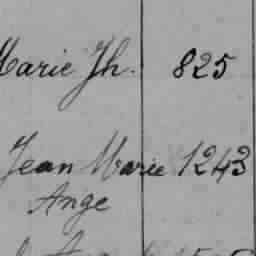 Marie Jh. 825
Jean Marie 1243
Ange